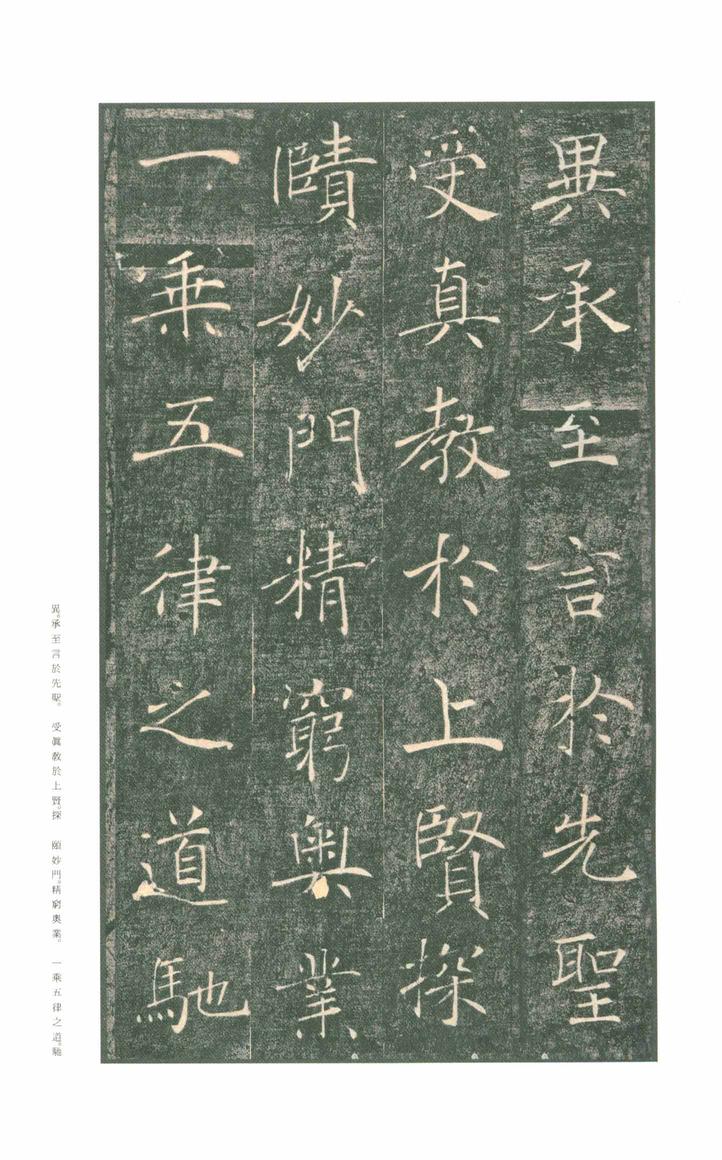 異承至言於先聖
受真教於上賢探
賾妙門精窮奧業
一乘五律之道馳
異。承至言於先聖。受眞教於上賢。探賾妙門。精窮奧業。一乘五律之道。馳